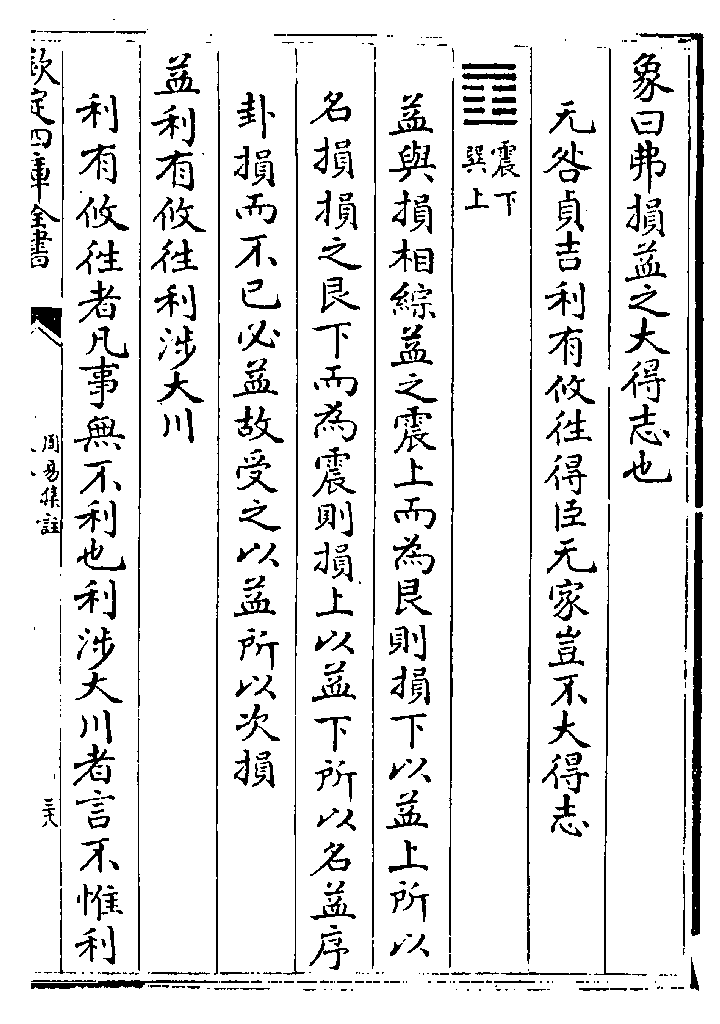 象曰弗損益之大得志也
无咎貞吉利有攸往得臣无家豈不大得志
䷩
震下
巽上
益與損相綜益之震上而為艮則損下以益上所以
名損損之艮下而為震則損上以益下所以名益序
卦損而不已必益故受之以益所以次損
益利有攸往利涉大川
利有攸往者凡事無不利也利涉大川者言不惟利
欽定四庫全書
周易集註